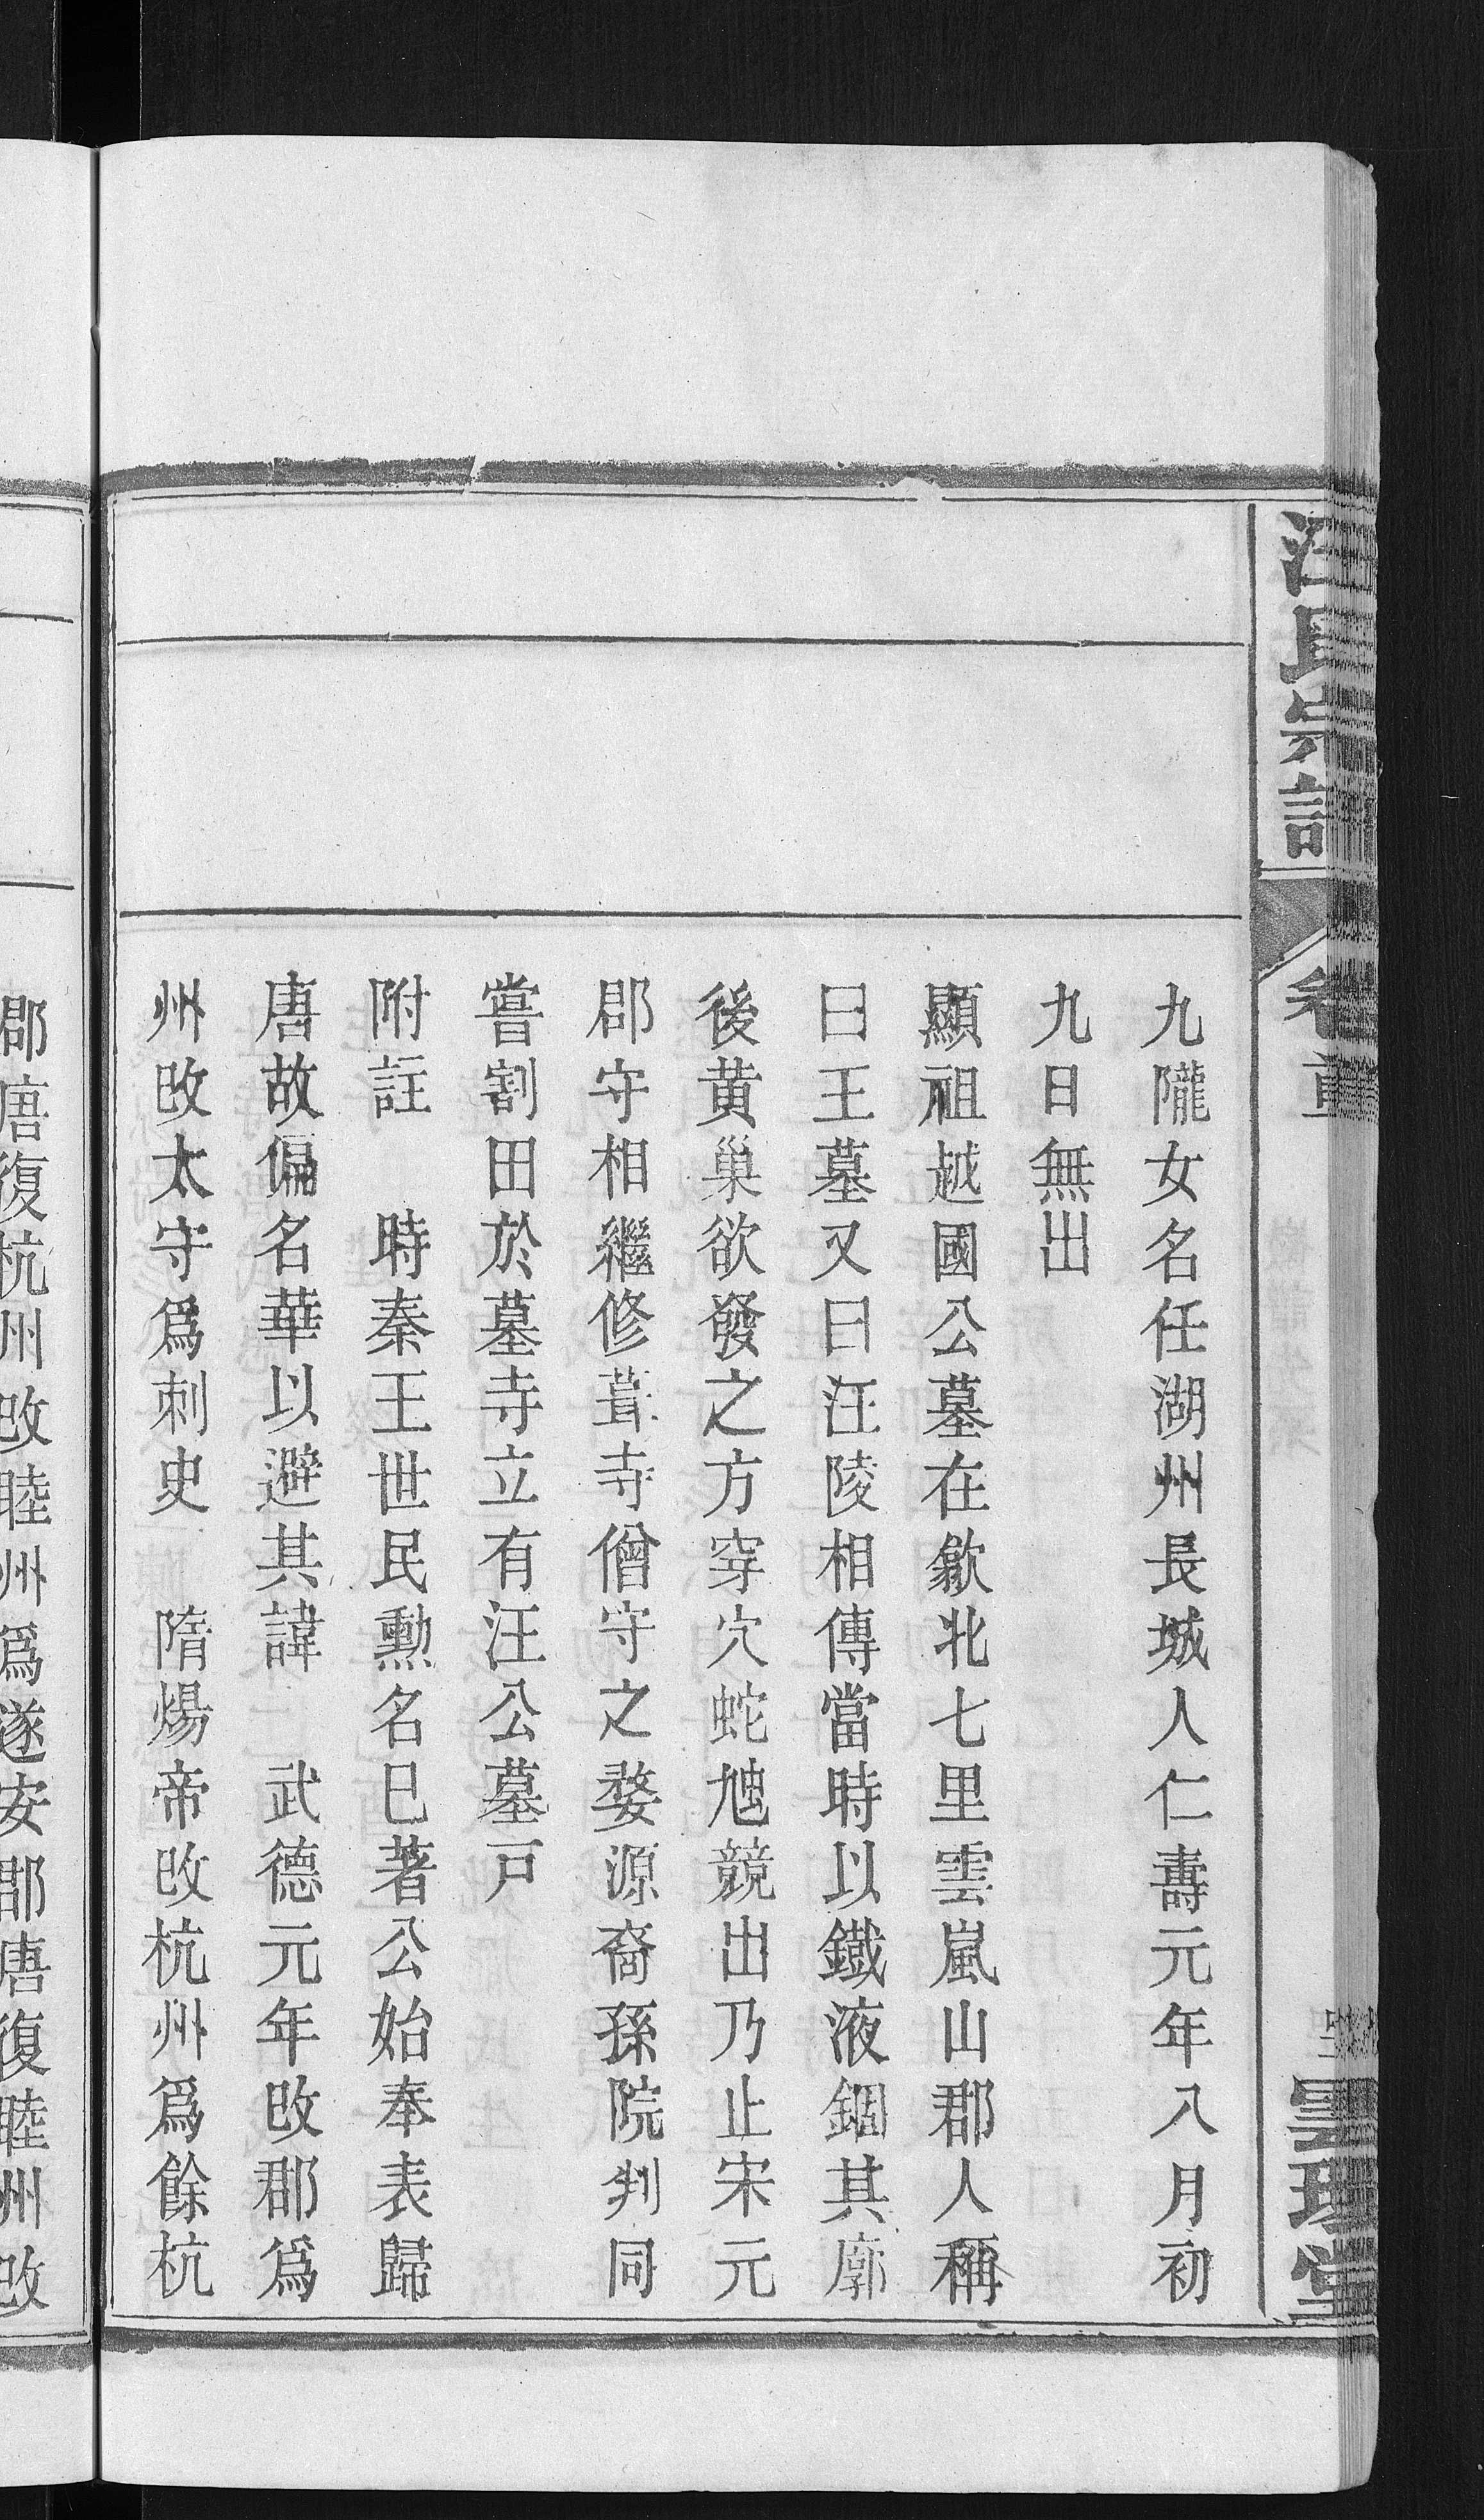 汪氏宗譜
卷首
九隴女名任湖州長城人仁壽元年八月初
九日無出
顯祖越國公墓在歙北七里雲嵐山郡人稱
曰王墓又曰汪陵相傳當時以鐵液錮其廓
後黃巢欲發之方穿穴蛇虺競出乃止宋元
郡守相繼修葺寺僧守之婺源裔孫院判同
嘗割田於墓寺立有汪公墓戸
附註 時秦王世民勲名巳著公始奉表歸
唐故偏名華以避其諱 武德元年改郡爲
州改太守爲刺史 隋煬帝改杭州爲餘杭
郡唐復杭州改睦州爲遂安郡唐復睦州改